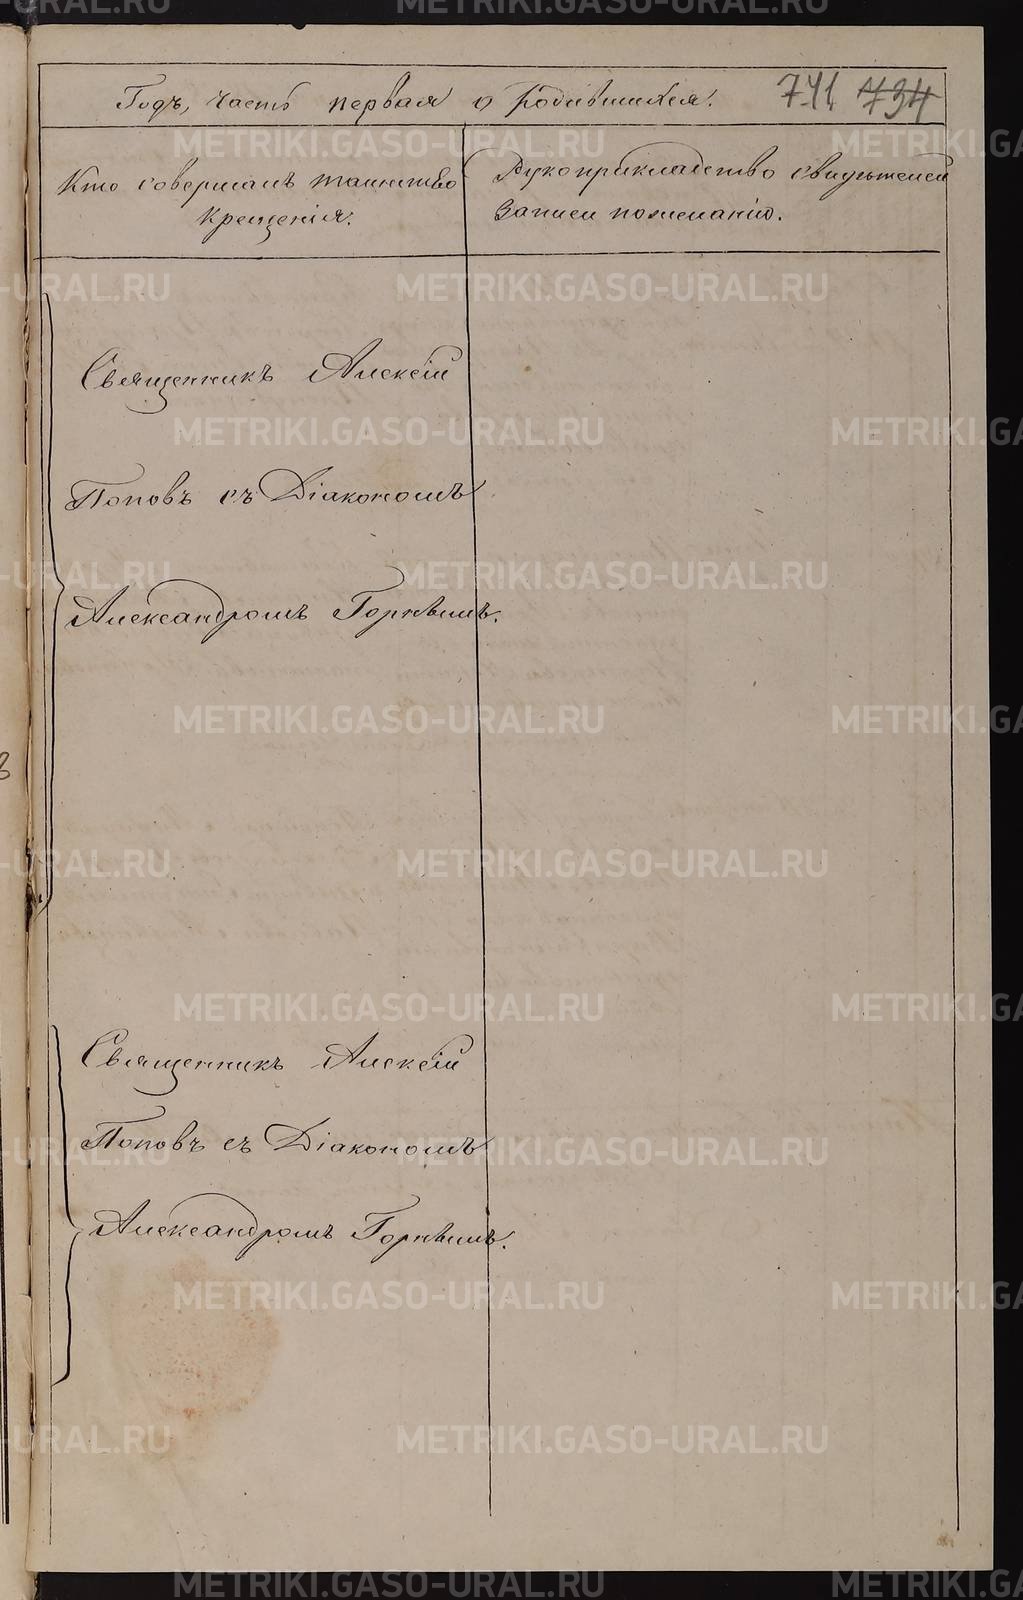 Годъ, часть первая о родившихся. 741 734
Кто совершалъ таинство
крещенія.
Рукоприкладство свидѣтелей
записи по желанію.
Священникъ Алексій
Поповъ съ Діакономъ
Александромъ Горнѣымъ.
Священникъ Алексій
Поповъ съ Діакономъ
Александромъ Горнѣымъ.
METRIKI.GASO-URAL.RU